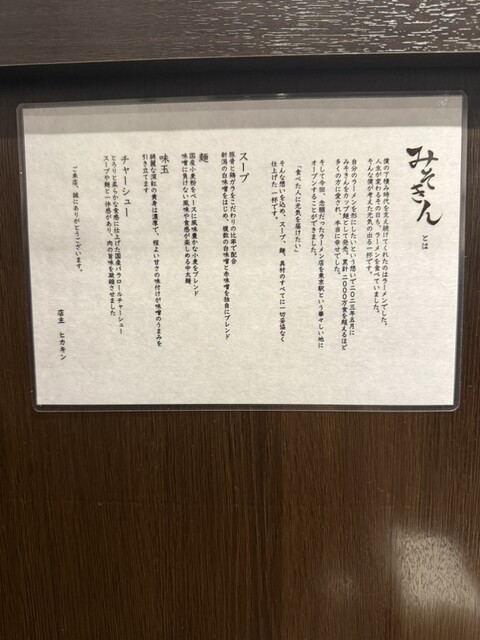 みそきん とは
僕の下積み時代を支え続けてくれたのはラーメンでした。
人生が変わるあの日も、ラーメンを食べていました。
そんな僕が考えた元気の出る一杯です。
自分のラーメンを形にしたいという想いで二〇二三年五月に
みそきんをカップ麺として発売。累計二〇〇〇万食を超えるほど
多くの方に愛され、本当に幸せでした。
そして今回、念願だったラーメン店を東京駅という華々しい地に
オープンすることができました。
「食べた人に元気を届けたい」
そんな想いを込め、スープ、麺、具材のすべてに一切妥協なく
仕上げた一杯です。
スープ
豚骨と鶏ガラをこだわりの比率で配合
新潟の白味噌をはじめ、複数の白味噌と赤味噌を独自にブレンド
麺
国産小麦粉をベースに風味豊かな小麦をブレンド
味噌に負けない風味や食感が楽しめる中太麺
味玉
綺麗な深紅の黄身は濃厚で、程よい甘さの味付けが味噌のうまみを
引き立てます
チャーシュー
とろりと柔らかな食感に仕上げた国産バラロールチャーシュー
スープや麺と一体感があり、肉の旨味を凝縮させました
ご来店、誠にありがとうございます。
店主 ヒカキン